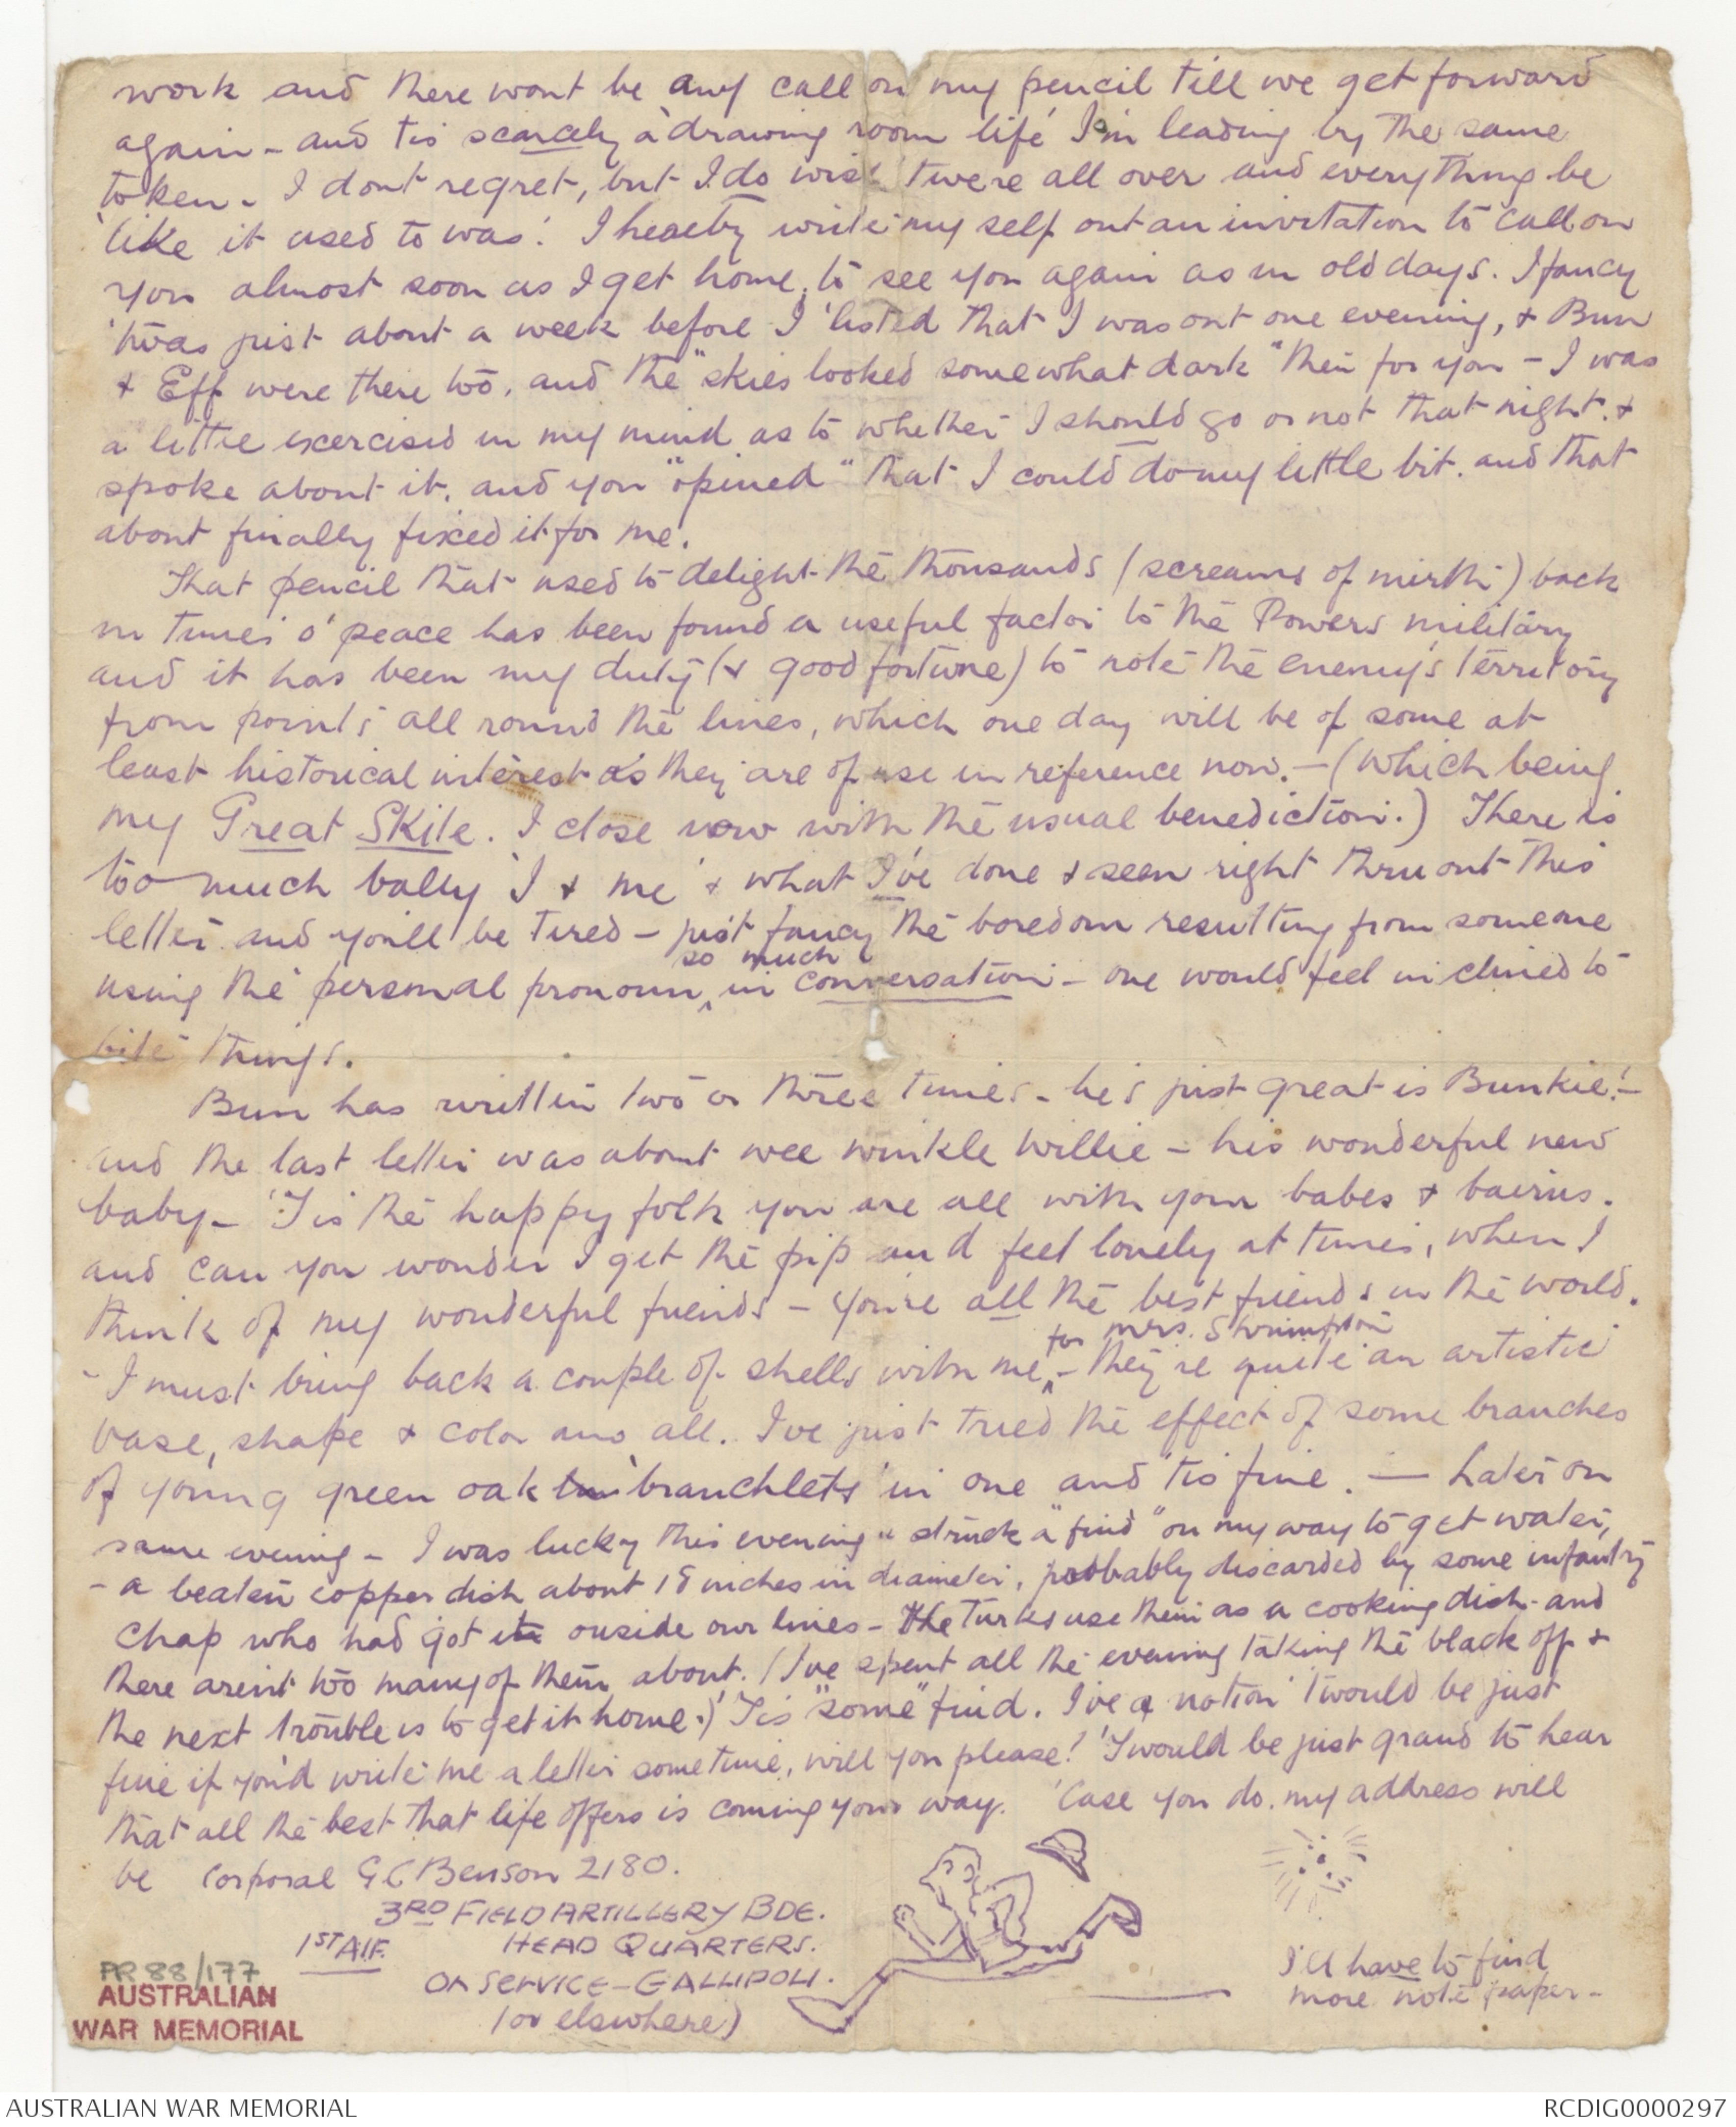 work and there wont be any call on my pencil till we get forward
again - and tis scarcely a 'drawing room life' I'm leading by the same
token - I dont regret, but I do wish 'twere all over and everything be
'like it used to was'. I hereby write myself out an invitation to call on
you almost soon as I get home, to see you again as in old days. I fancy
'twas just about a week before I 'listed that I was out one evening, & Bun
& Eff were there too, and the "skies looked somewhat dark" then for you - I was
a little exercised in my mind as to whether I should go or not that night. &
spoke about it, and you "opined" that I could do my little bit. and that
about finally fixed it for me.
That pencil that used to delight the thousands (screams of mirth) back
in times o' peace has been found a useful factor to the Powers military
and it has been my duty (& good fortune) to note the enemy's territory
from points all round the lines, which one day will be of some at
least historical interest as they are of use in reference now. - (which being
my Great Skite. I close now with the usual benediction.) There is
too much bally 'I & me' & what I've done & seen right thru out this
letter and you'll be tired - just fancy the boredom resulting from someone
using the personal pronoun so much in conversation - one would feel inclined to
bite things.
Bun has written two or three times - he's just great is Bunkie! -
and the last letter was about wee winkle Willie - his wonderful new
baby - 'Tis the happy folk you are all with your babes & bairns.
and can you wonder I get the pip and feel lonely at times, when I
think of my wonderful friends - you're all the best friends in the world.
- I must bring back a couple of shells with me for Mrs. Shrimpton - they're quite an artistic
vase, shape & color and all. I've just tried the effect of some branches
of young green oak 'branchlets' in one and 'tis fine. — Later on
same evening - I was lucky this evening & struck a "find" on my way to get water,
- a beaten copper dish about 18 inches in diameter, probably discarded by some infantry
chap who had got it ouside our lines - the Turks use them as a cooking dish - and
there aren't too many of them about. (I've spent all the evening taking the black off &
the next trouble is to get it home.) 'Tis "some" find. I've a notion 'twould be just
fine if you'd write me a letter sometime, will you please! 'Twould be just grand to hear
that all the best that life offers is coming your way. 'Case you do. my address will
be Corporal G C Benson 2180.
3RD FIELD ARTILLERY BDE.
1ST AIF. HEAD QUARTERS.
ON SERVICE - GALLIPOLI.
(or elsewhere)
I'll have to find
more note paper -
PR 88/177
AUSTRALIAN
WAR MEMORIAL
AUSTRALIAN WAR MEMORIAL
RCDIG0000297